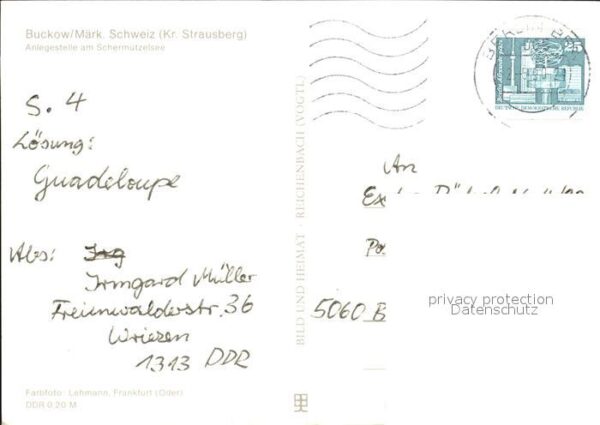 Buckow/Märk. Schweiz (Kr. Strausberg)
Anlegestelle am Schermützelsee
S. 4
Lösung:
Guadeloupe
Abs:
Irmgard Müller
Freienwalderstr. 36
Wriezen
1313 DDR
Farbfoto: Lehmann, Frankfurt (Oder)
DDR 0,20 M
BILD UND HEIMAT · REICHENBACH (VOGTL)
25
DEUTSCHE DEMOKRATISCHE REPUBLIK
An
5060 B
privacy protection
Datenschutz